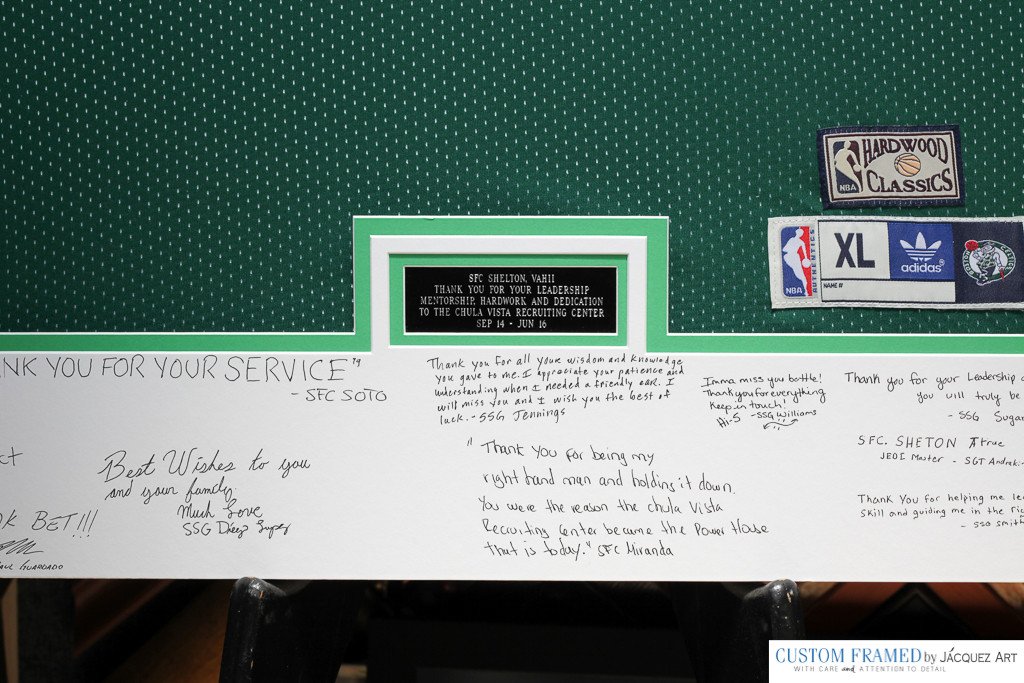 HARDWOOD
CLASSICS
NBA
NBA
AUTHENTICS
XL
NAME #
adidas
BOSTON CELTICS
SFC SHELTON, VAHII
THANK YOU FOR YOUR LEADERSHIP
MENTORSHIP, HARDWORK AND DEDICATION
TO THE CHULA VISTA RECRUITING CENTER
SEP 14 - JUN 16
NK YOU FOR YOUR SERVICE"
- SFC SOTO
Best Wishes to you
and your family.
Much Love
SSG Diego
OK BET!!!
GUARDADO
Thank you for all youre wisdom and knowledge
you gave to me. I appreciate your patience and
understanding when I needed a friendly ear. I
will miss you and I wish you the best of
luck. - SSG Jennings
"Thank you for being my
right hand man and holding it down.
You were the reason the chula Vista
Recruiting Center became the Power House
that is today." SFC Miranda
Imma miss you battle!
Thank you for everything
keep in touch!
Hi-5 - SSG Williams
Thank you for your Leadership
you will truly be
- SSG Sugar
SFC. SHETON A true
JEDI Master - SGT
Thank You for helping me
skill and guiding me in the
- SSG Smith
CUSTOM FRAMED by JÁCQUEZ ART
WITH CARE and ATTENTION TO DETAIL